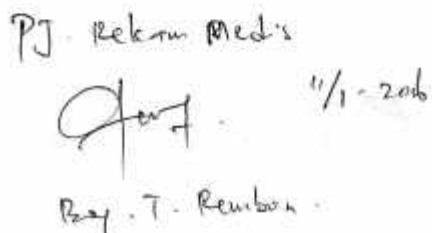 PJ. Rekam Medis
11/1 - 2016
T. Rembon.